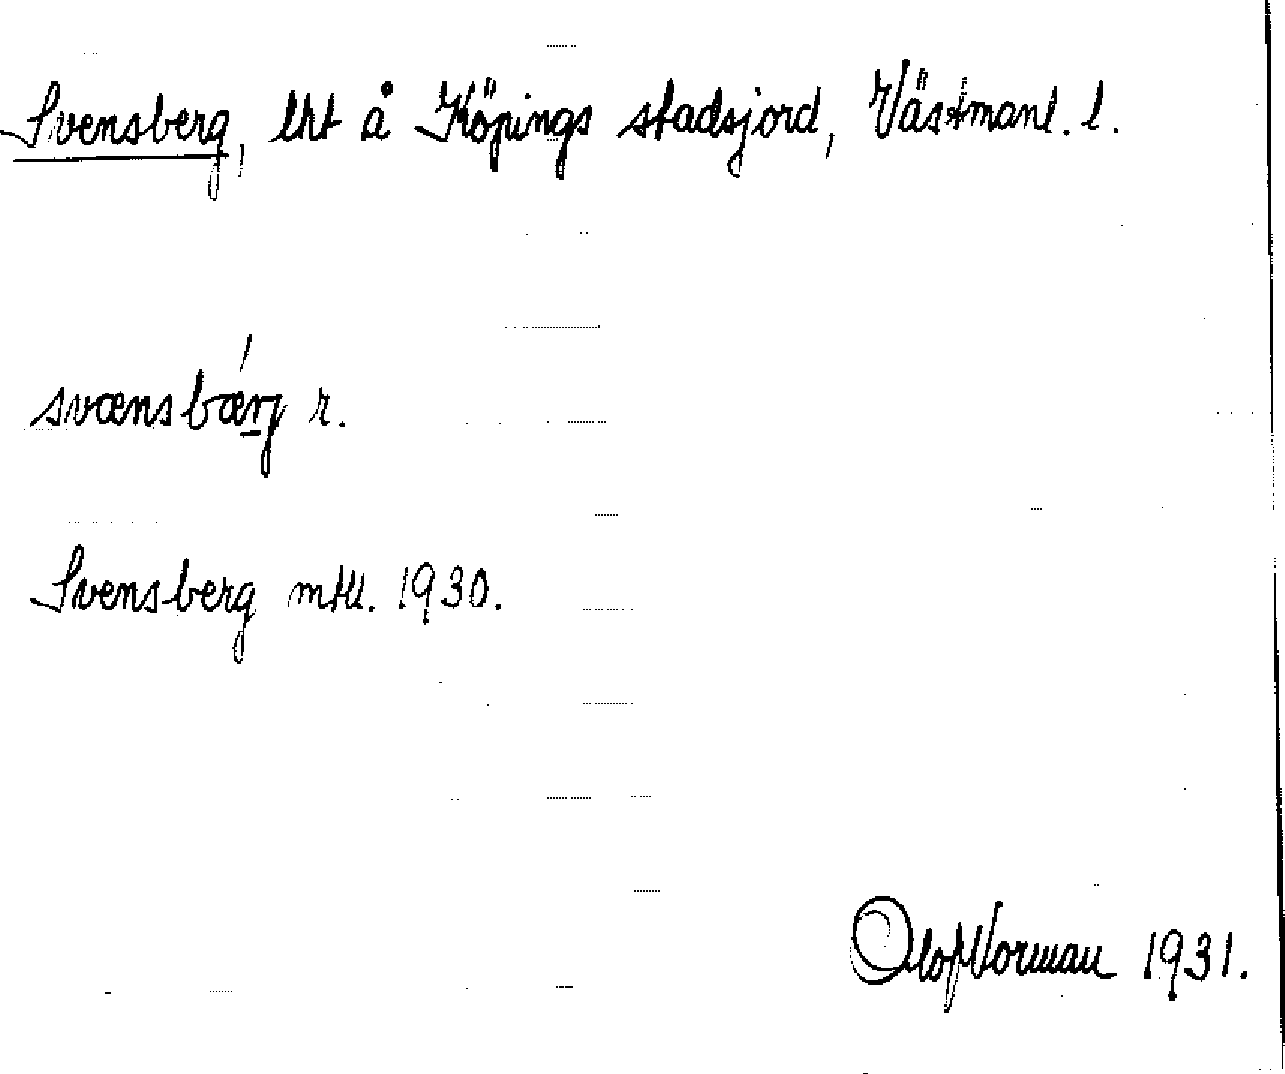 Svensberg, lht å Köpings stadsjord, Västmanl. l.
svænsbærj r.
Svensberg mtl. 1930.
Olof Norman 1931.